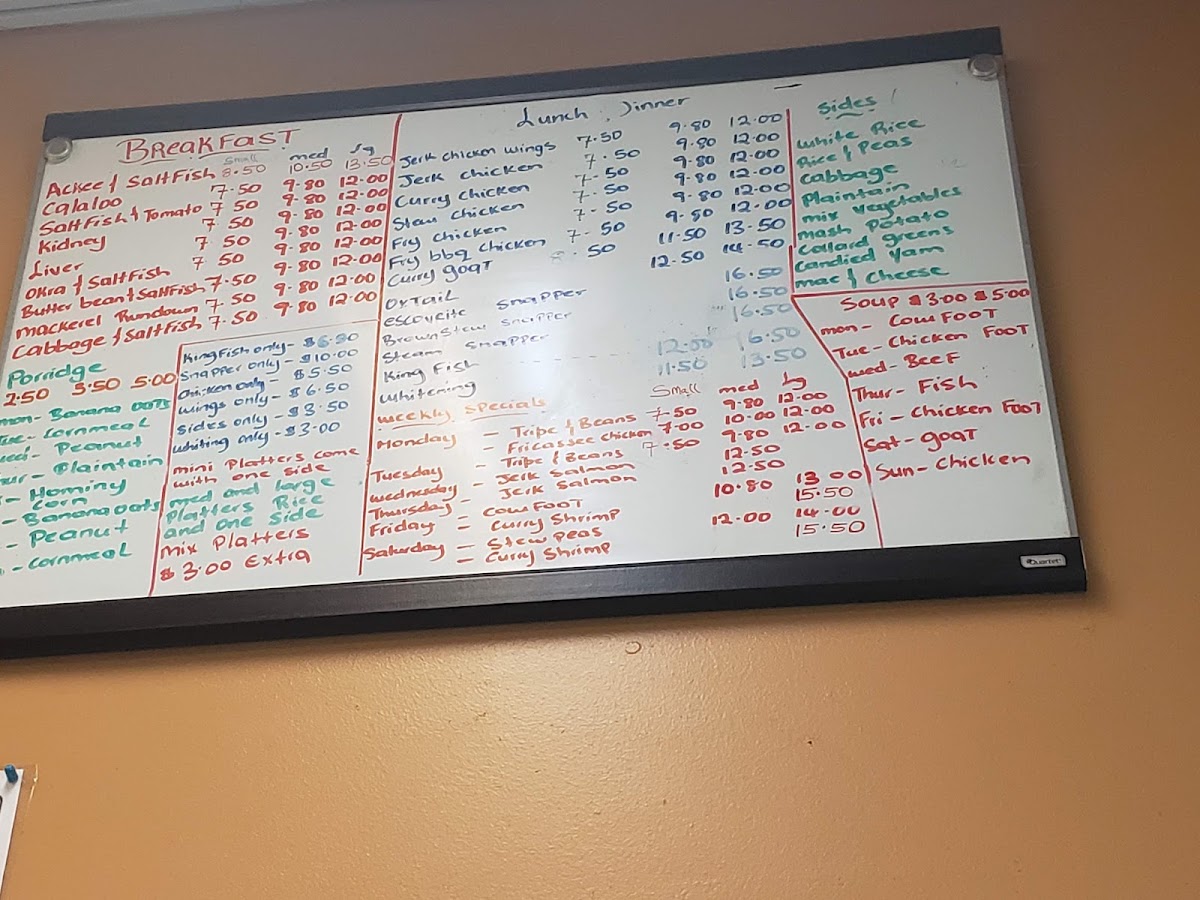 BreakFast
Small med lg
Ackee & SaltFish 8.50 10.50 13.50
Calaloo 7.50 9.80 12.00
SaltFish & Tomato 7.50 9.80 12.00
Kidney 7.50 9.80 12.00
Liver 7.50 9.80 12.00
Okra & SaltFish 7.50 9.80 12.00
Butter bean & SaltFish 7.50 9.80 12.00
Mackerel Rundown 7.50 9.80 12.00
Cabbage & SaltFish 7.50 9.80 12.00
Porridge
2.50 3.50 5.00
mon- Banana oats
Tue- Cornmeal
Peanut
Plaintain
- Hominy
Corn
- Banana oats
- Peanut
- Cornmeal
King Fish only - $6.80
Snapper only - $10.00
Chicken only - $5.50
wings only - $6.50
sides only - $3.50
whiting only - $3.00
mini Platters come
with one side
med and large
Platters Rice
and one side
Mix Platters
$3.00 Extra
Lunch, Dinner
Jerk chicken wings 7.50 9.80 12.00
Jerk chicken 7.50 9.80 12.00
Curry chicken 7.50 9.80 12.00
Stew chicken 7.50 9.80 12.00
Fry chicken 7.50 9.80 12.00
Fry bbq chicken 7.50 9.80 12.00
Curry goat .50 11.50 13.50
OxTail 12.50 14.50
escoveite Snapper 16.50
Brown Stew Snapper 16.50
Steam Snapper 16.50
King Fish 12.00 16.50
Whitening 11.50 13.50
Weekly Specials Small med lg
Monday - Tripe & Beans 7.50 9.80 12.00
- Fricassee Chicken 7.00 10.00 12.00
Tuesday - Tripe & Beans 7.50 9.80 12.00
Wednesday - Jerk Salmon 12.50
Thursday - Jerk Salmon 12.50
Friday - Cow Foot 10.80 13.00
- Curry Shrimp 15.50
Saturday - Stew Peas 12.00 14.00
- Curry Shrimp 15.50
Sides
White Rice
Rice & Peas
Cabbage
Plaintain
mix vegetables
mash Potato
Collard greens
Candied Yam
mac & Cheese
Soup $3.00 $5.00
mon- Cow Foot
Tue- Chicken Foot
Wed- Beef
Thur- Fish
Fri - Chicken Foot
Sat- goat
Sun- Chicken
Quartet